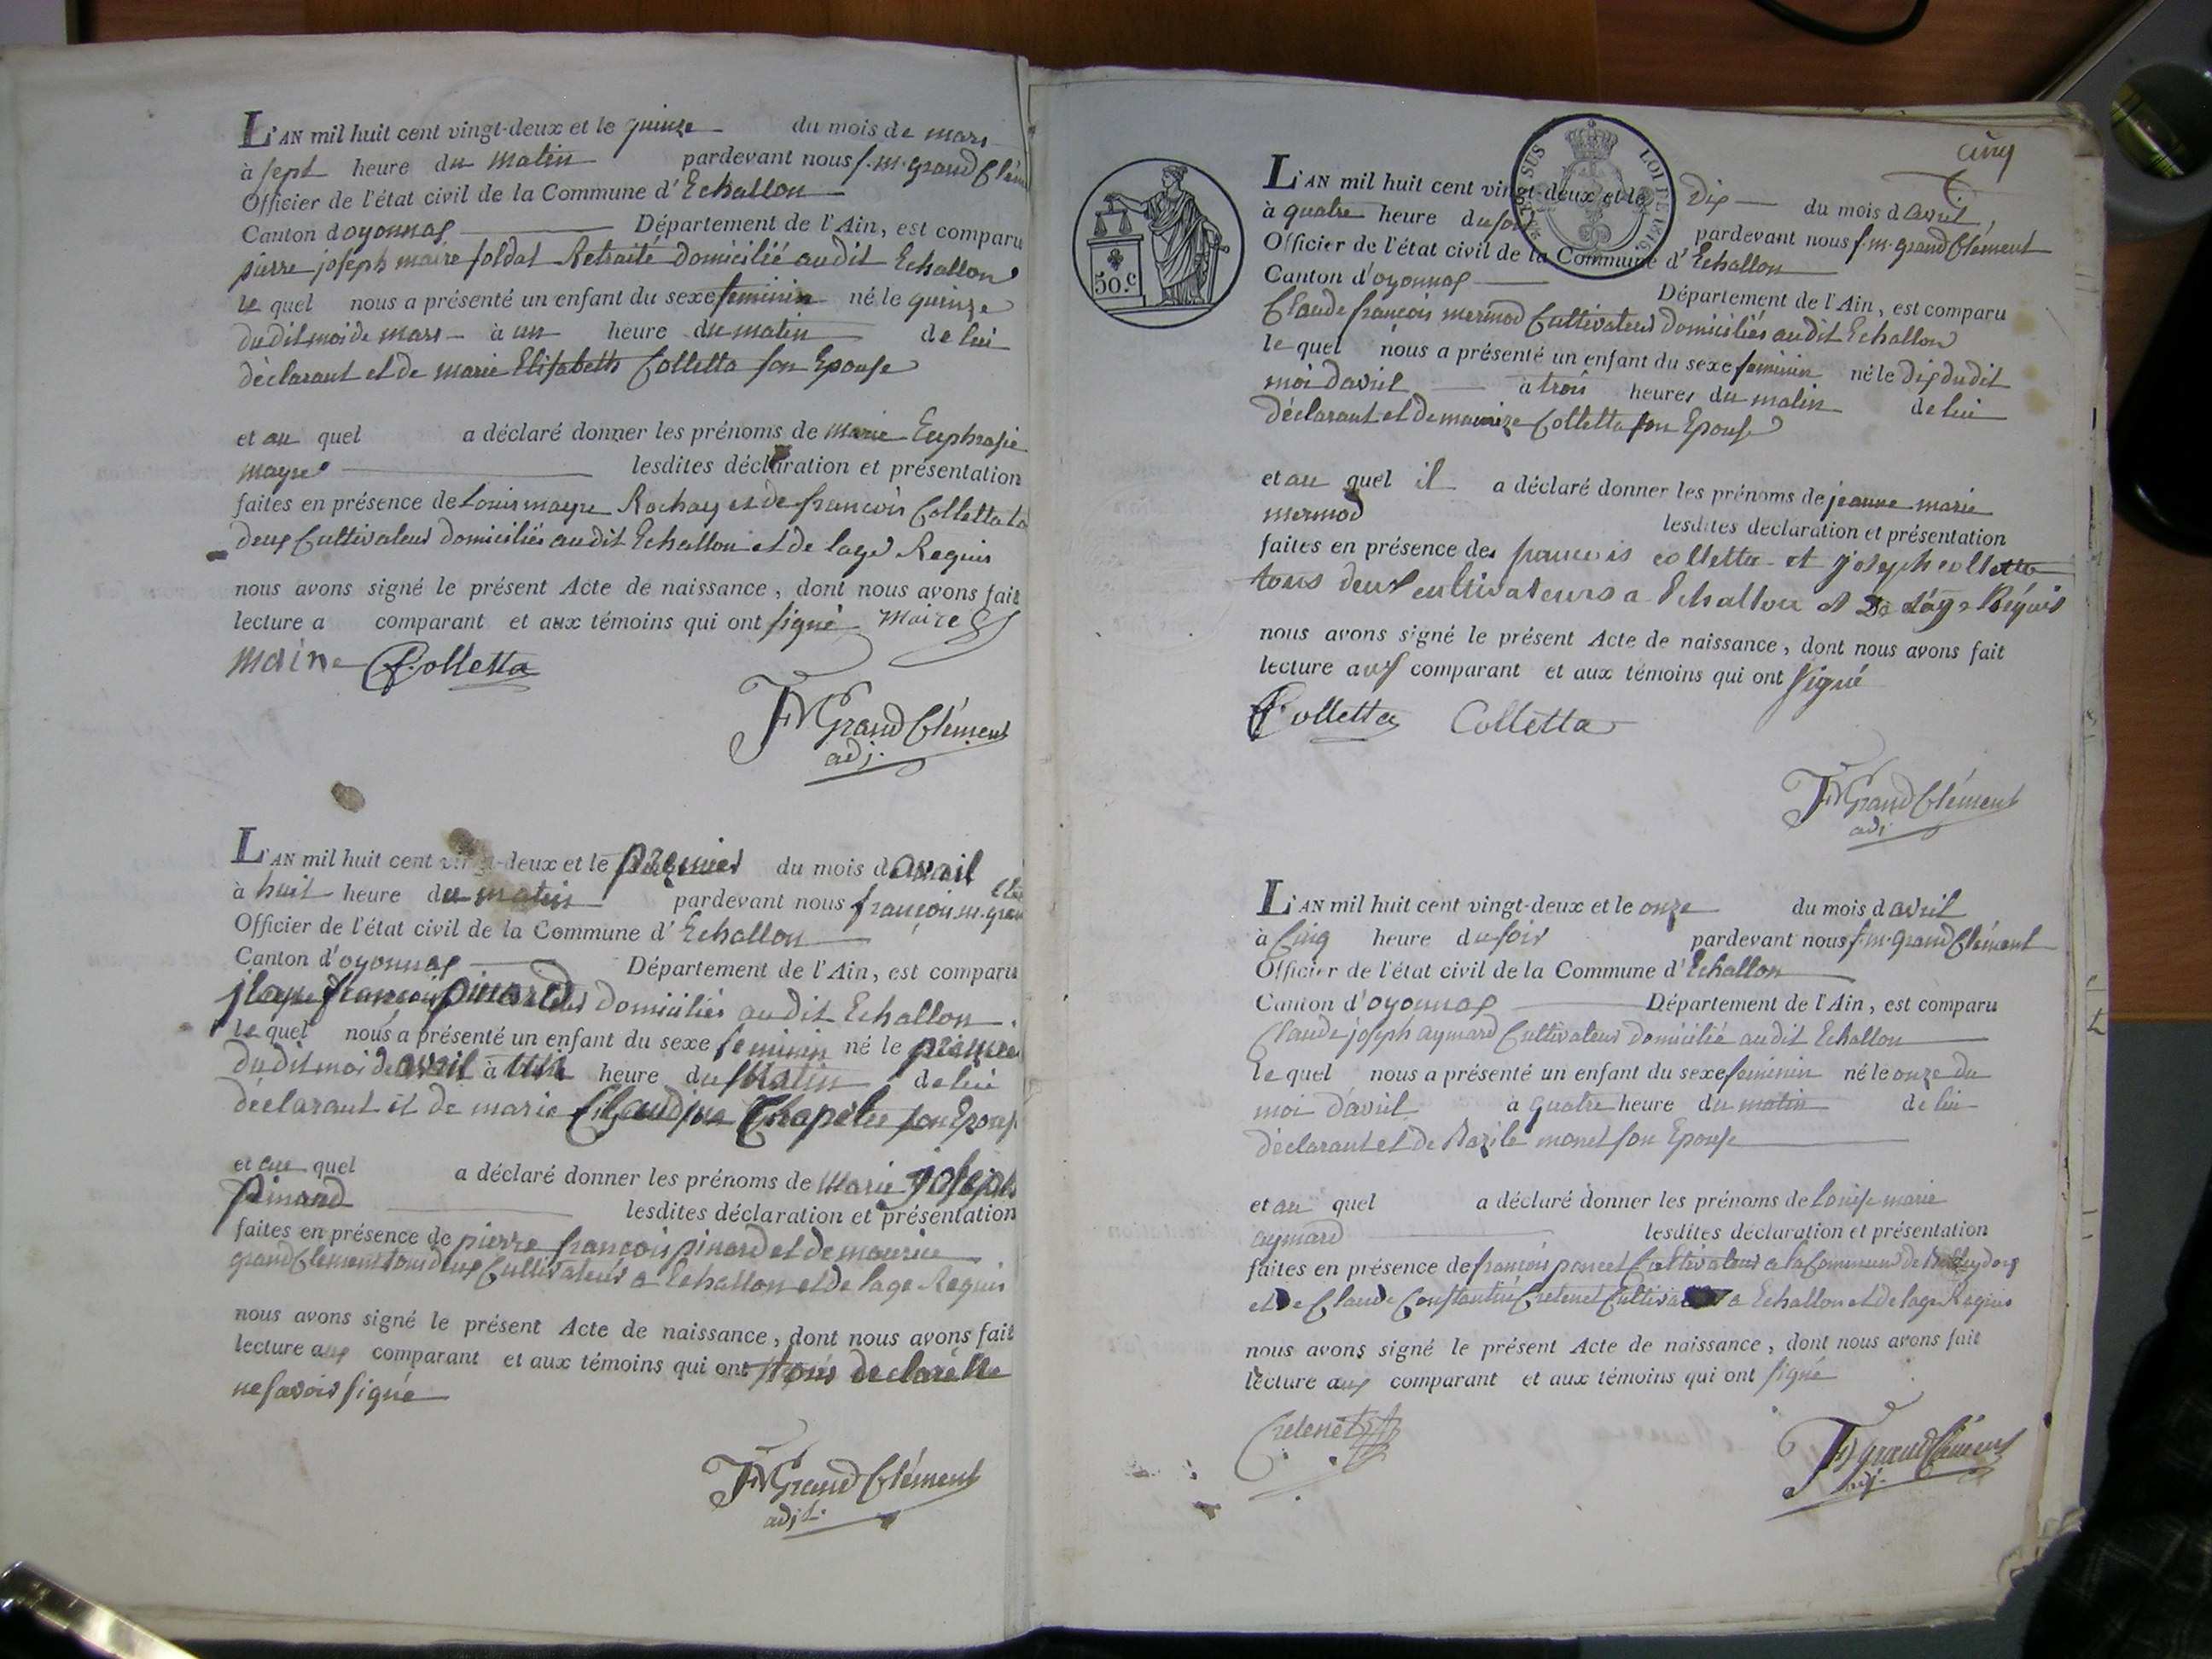 L'AN mil huit cent vingt-deux et le quinze du mois de mars
à sept heure du matin pardevant nous f. m. grand Clém
Officier de l'état civil de la Commune d'Echallon
Canton doyonnax Département de l'Ain, est comparu
pierre joseph maire soldat Retraité domicilié audit Echallon
le quel nous a présenté un enfant du sexe feminin né le quinze
dudit moi de mars à un heure du matin de lui
déclarant et de marie Elisabeth Colletta son Epouse
et au quel a déclaré donner les prénoms de marie Euphrasie
mayre lesdites déclaration et présentation
faites en présence de Louis mayre Rochay et de francois Colletta
deux Cultivateurs domiciliés audit Echallon et de lage Requis
nous avons signé le présent Acte de naissance, dont nous avons fait
lecture a comparant et aux témoins qui ont signé maire
maire Colletta
FM Grand Clément
adj.
L'AN mil huit cent vingt-deux et le premier du mois d avril
à huit heure du matin pardevant nous françois m. gran
Clé
Officier de l'état civil de la Commune d'Echallon
Canton d'oyonnax Département de l'Ain, est comparu
françois pinard domiciliés audit Echallon
le quel nous a présenté un enfant du sexe feminin né le premier
dudit moi de avril à heure du matin de lui
déclarant et de marie Claudine Chapelu son Epouse
et au quel a déclaré donner les prénoms de Marie joseph
Pinard lesdites déclaration et présentation
faites en présence de pierre françois pinard et de maurice
grand Clement tous deux Cultivateurs a Echallon et de lage Requis
nous avons signé le présent Acte de naissance, dont nous avons fait
lecture aux comparant et aux témoins qui ont tous declaré
ne savoir signé
FM Grand Clément
adjt.
cinq
TIMBRE SUS LOI DE 1816.
50.c
L'AN mil huit cent vingt-deux et le Dix du mois d avril,
à quatre heure du soir pardevant nous f. m. grand Clément
Officier de l'état civil de la Commune d'Echallon
Canton d'oyonnax Département de l'Ain, est comparu
Claude françois mermod Cultivateur domiciliés audit Echallon
le quel nous a présenté un enfant du sexe feminin né le dix dudit
moi davril à trois heures du matin de lui
déclarant et de Colletta son Epouse
et au quel il a déclaré donner les prénoms de jeanne marie
mermod lesdites déclaration et présentation
faites en présence des francois colletta et joseph colletta
tous deux cultivateurs a Echallon et de L'age Réquis
nous avons signé le présent Acte de naissance, dont nous avons fait
lecture aux comparant et aux témoins qui ont signé
Colletta Colletta
FM Grand Clément
adj.
L'AN mil huit cent vingt-deux et le onze du mois d avril
à Cinq heure du soir pardevant nous f. m. grand Clément
Officier de l'état civil de la Commune d'Echallon
Canton d'oyonnax Département de l'Ain, est comparu
Claude joseph aymard Cultivateur domicilié audit Echallon
le quel nous a présenté un enfant du sexe feminin né le onze du
moi davril à quatre heure du matin de lui
déclarant et de Bazile monet son Epouse
et au quel a déclaré donner les prénoms de Louise marie
aymard lesdites déclaration et présentation
faites en présence de françois poncet Cultivateur a la Commune de
et de Claude Constantin Cretenet Cultivateur a Echallon et de lage Requis
nous avons signé le présent Acte de naissance, dont nous avons fait
lecture aux comparant et aux témoins qui ont signé
Cretenet
FM Grand Clément
adj.